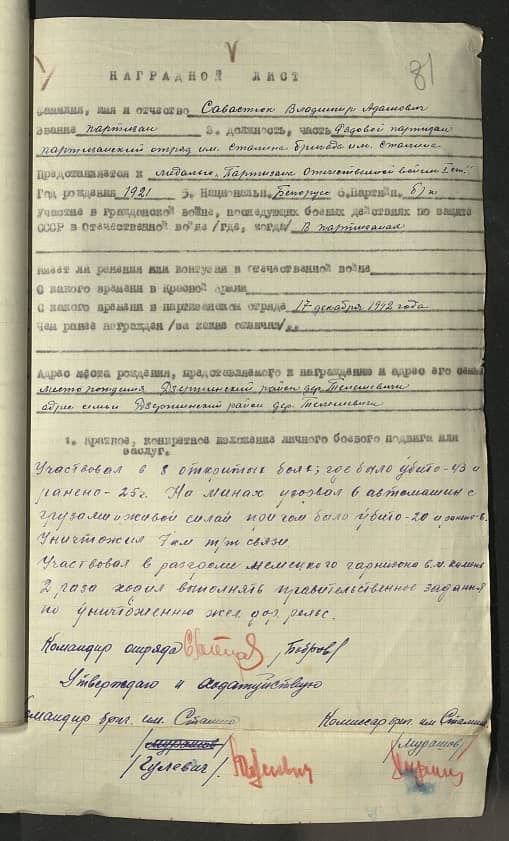 81
НАГРАДНОЙ ЛИСТ
Фамилия, имя и отчество Савастюк Владимир Адамович
Звание партизан 3. должность, часть Рядовой партизан
партизанский отряд им. Сталина бригады им. Сталина
Представляется к медалью "Партизан Отечественной войны I ст."
Год рождения 1921 5. Национальн. Белорус 6. Партийн. б/п
Участие в Гражданской войне, последующих боевых действиях по защите
СССР в Отечественной войне /где, когда/ В партизанах
Имеет ли ранения или контузии в Отечественной войне
С какого времени в Красной Армии
С какого времени в партизанском отряде 17 декабря 1942 года
Чем ранее награжден /за какие отличия/
Адрес места рождения, представляемого к награждению и адрес его семьи
место рождения Дзержинский район дер. Телешевичи
адрес семьи Дзержинский район дер. Телешевичи
1. Краткое, конкретное изложение личного боевого подвига или
заслуг.
Участвовал в 8 открытых боях; где было убито-43 и
ранено-25г. На минах взорвал 2 автомашин с
грузами и живой силой при чем было убито-20 и ранено-8.
Уничтожил 7 км т/т связи.
Участвовал в разгроме немецкого гарнизона в м.
2 раза ходил выполнять правительственное задания
по уничтожению жел. дор. рельс.
Командир отряда /Бобров/
Утверждаю и ходатайствую
Командир бриг. им. Сталина Комиссар бриг. им Сталина
/Мурашов/ /Мурашов/
/Гулевич/